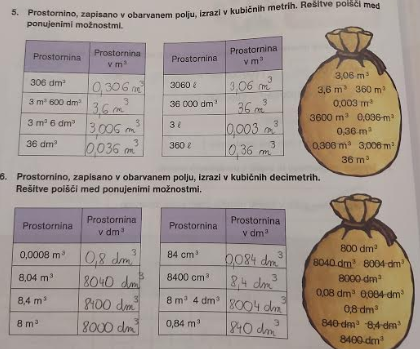 5. Prostornino, zapisano v obarvanem polju, izrazi v kubičnih metrih. Rešitve poišči med
ponujenimi možnostmi.
Prostornina Prostornina v m³
306 dm³ 0,306 m³
3 m³ 600 dm³ 3,6 m³
3 m³ 6 dm³ 3,006 m³
36 dm³ 0,036 m³
Prostornina Prostornina v m³
3060 ℓ 3,06 m³
36 000 dm³ 36 m³
3 ℓ 0,003 m³
360 ℓ 0,36 m³
3,06 m³
3,6 m³ 360 m³
0,003 m³
3600 m³ 0,036 m³
0,36 m³
0,306 m³ 3,006 m³
36 m³
6. Prostornino, zapisano v obarvanem polju, izrazi v kubičnih decimetrih.
Rešitve poišči med ponujenimi možnostmi.
Prostornina Prostornina v dm³
0,0008 m³ 0,8 dm³
8,04 m³ 8040 dm³
8,4 m³ 8400 dm³
8 m³ 8000 dm³
Prostornina Prostornina v dm³
84 cm³ 0,084 dm³
8400 cm³ 8,4 dm³
8 m³ 4 dm³ 8004 dm³
0,84 m³ 840 dm³
800 dm³
8040 dm³ 8004 dm³
8000 dm³
0,08 dm³ 0,084 dm³
0,8 dm³
840 dm³ 8,4 dm³
8400 dm³